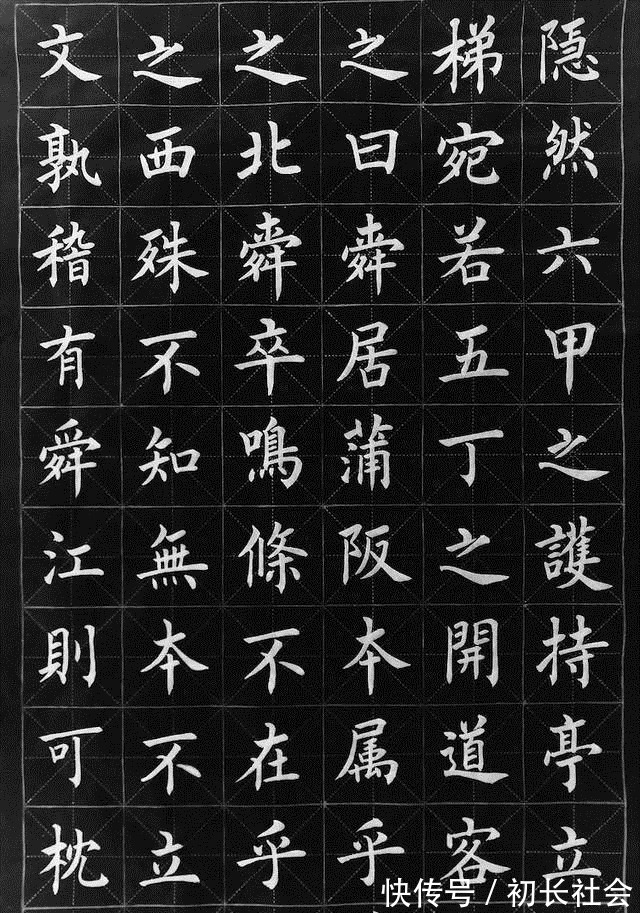 隱然六甲之護持亭立
梯宛若五丁之開道客
之曰舜居蒲阪本属乎
之北舜卒鳴條不在乎
之西殊不知無本不立
文孰稽有舜江則可枕
快传号 / 初长社会